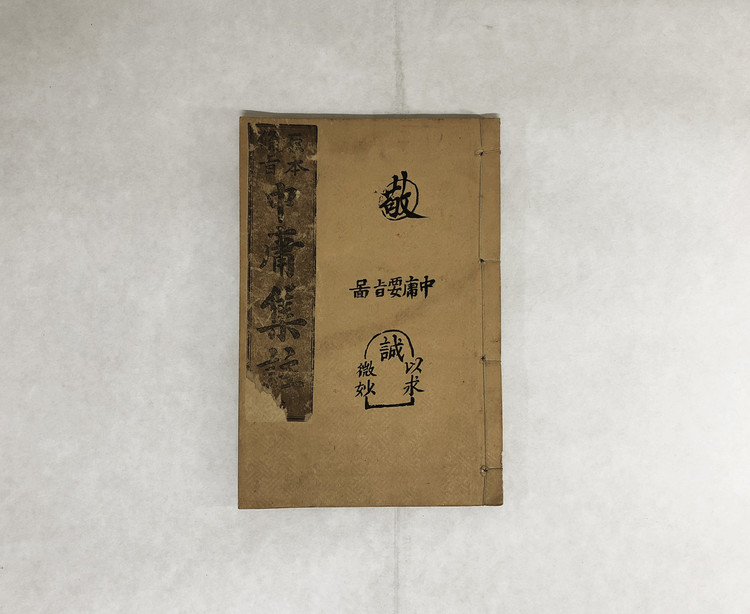 原本
備旨
中庸集註
敬
中庸要旨啚
誠
以求
微妙